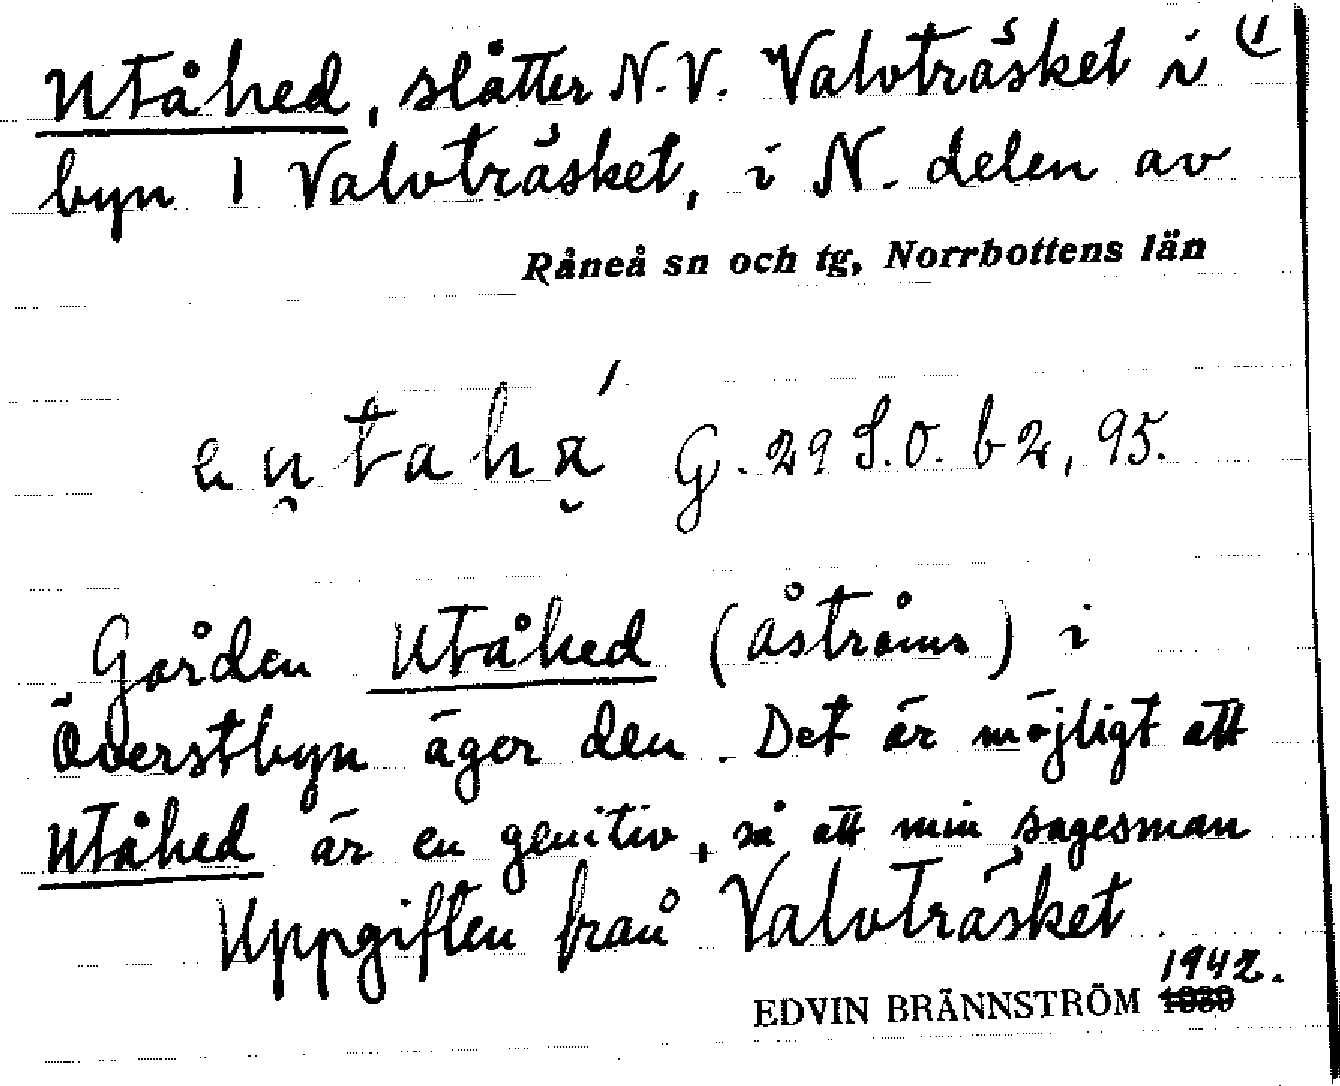 Utåhed, slåtter N.V. Valvträsket i (1
byn 1 Valvträsket, i N. delen av
Råneå sn och tg, Norrbottens län
G. 29 S.O. b 2, 95.
Gården Utåhed (Åströms) i
Överstbyn äger den. Det är möjligt att
Utåhed är en genitiv, så att min sagesman
Uppgiften från Valvträsket
1942.
EDVIN BRÄNNSTRÖM